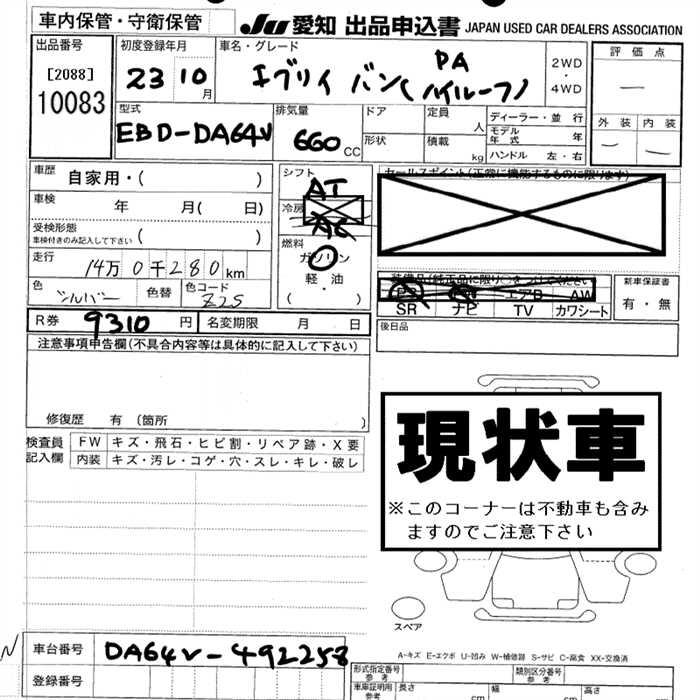 車内保管・守衛保管
JU 愛知 出品申込書 JAPAN USED CAR DEALERS ASSOCIATION
出品番号
[2088]
10083
初度登録年月
23 10月
車名・グレード
エブリイ バン(PA ハイルーフ)
2WD
・
4WD
評価点
—
外装 内装
— —
型式
EBD-DA64V
排気量
660 CC
ドア
形状
定員 人
積載 kg
ディーラー・並 行
モデル年式 年
ハンドル 左・右
車歴
自家用・( )
車検 年 月( 日)
受検形態
車検付きのみ記入して下さい ( )
走行 14万0千280km
色 シルバー 色替 色コード Z2S
シフト
AT
冷房
AC
燃料
ガソリン
軽・油
・( )
セールスポイント(正常に機能するものに限ります)
装備品(純正品に限り○をつけてください)
PS PW エアB AW
SR ナビ TV カワシート
新車保証書
有・無
後日品
R券 9310 円 名変期限 月 日
注意事項申告欄(不具合内容等は具体的に記入して下さい)
修復歴 有(箇所 )
検査員記入欄
FW キズ・飛石・ヒビ割・リペア跡・X要
内装 キズ・汚レ・コゲ・穴・スレ・キレ・破レ
現状車
※このコーナーは不動車も含み
ますのでご注意下さい
スペア
A-キズ E-エクボ U-凹み W-補修跡 S-サビ C-腐食 XX-交換済
車台番号 DA64V-492258
登録番号
形式指定番号 参考
類別区分番号 参考
車庫証明用 参考
長さ cm
幅 cm
高さ cm